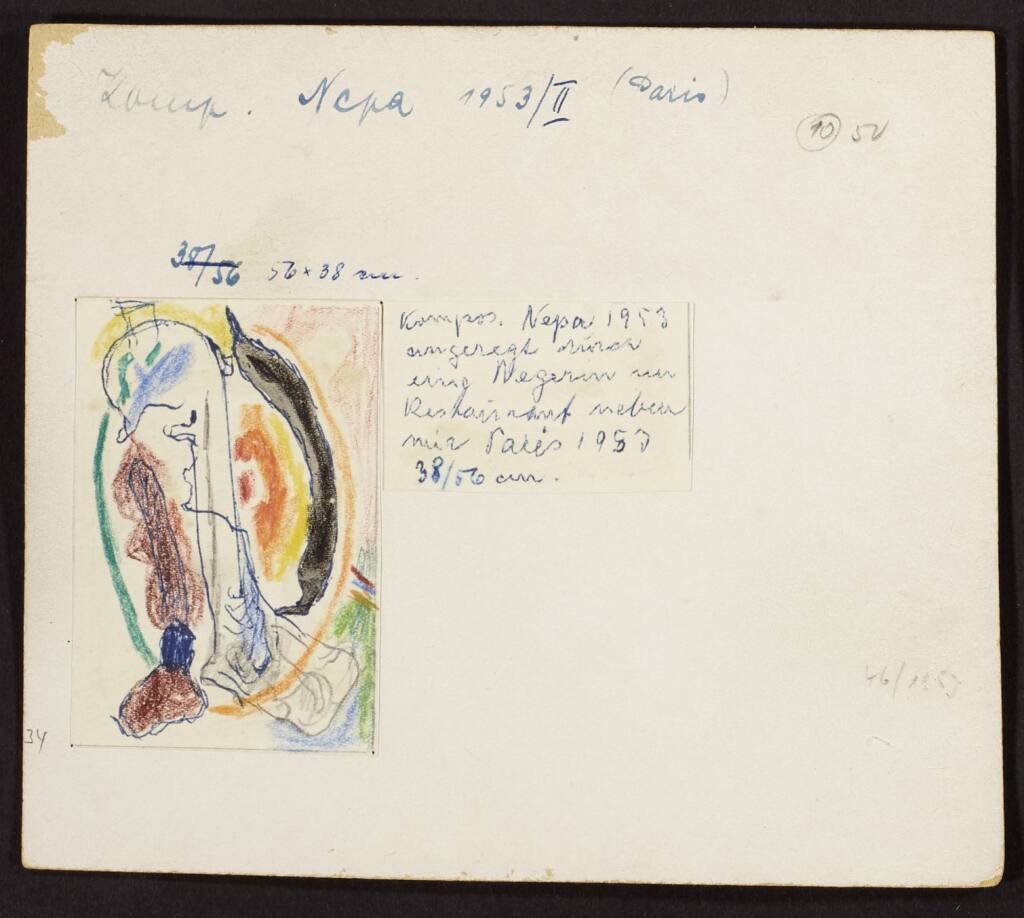 Komp. Nepa 1953/II (Paris)
10 50
38/56 56 x 38 cm.
Kompos. Nepa 1953
angeregt durch
eine Negerin im
Restaurant neben
mir Paris 1953
38/56 cm.
46/1953
34